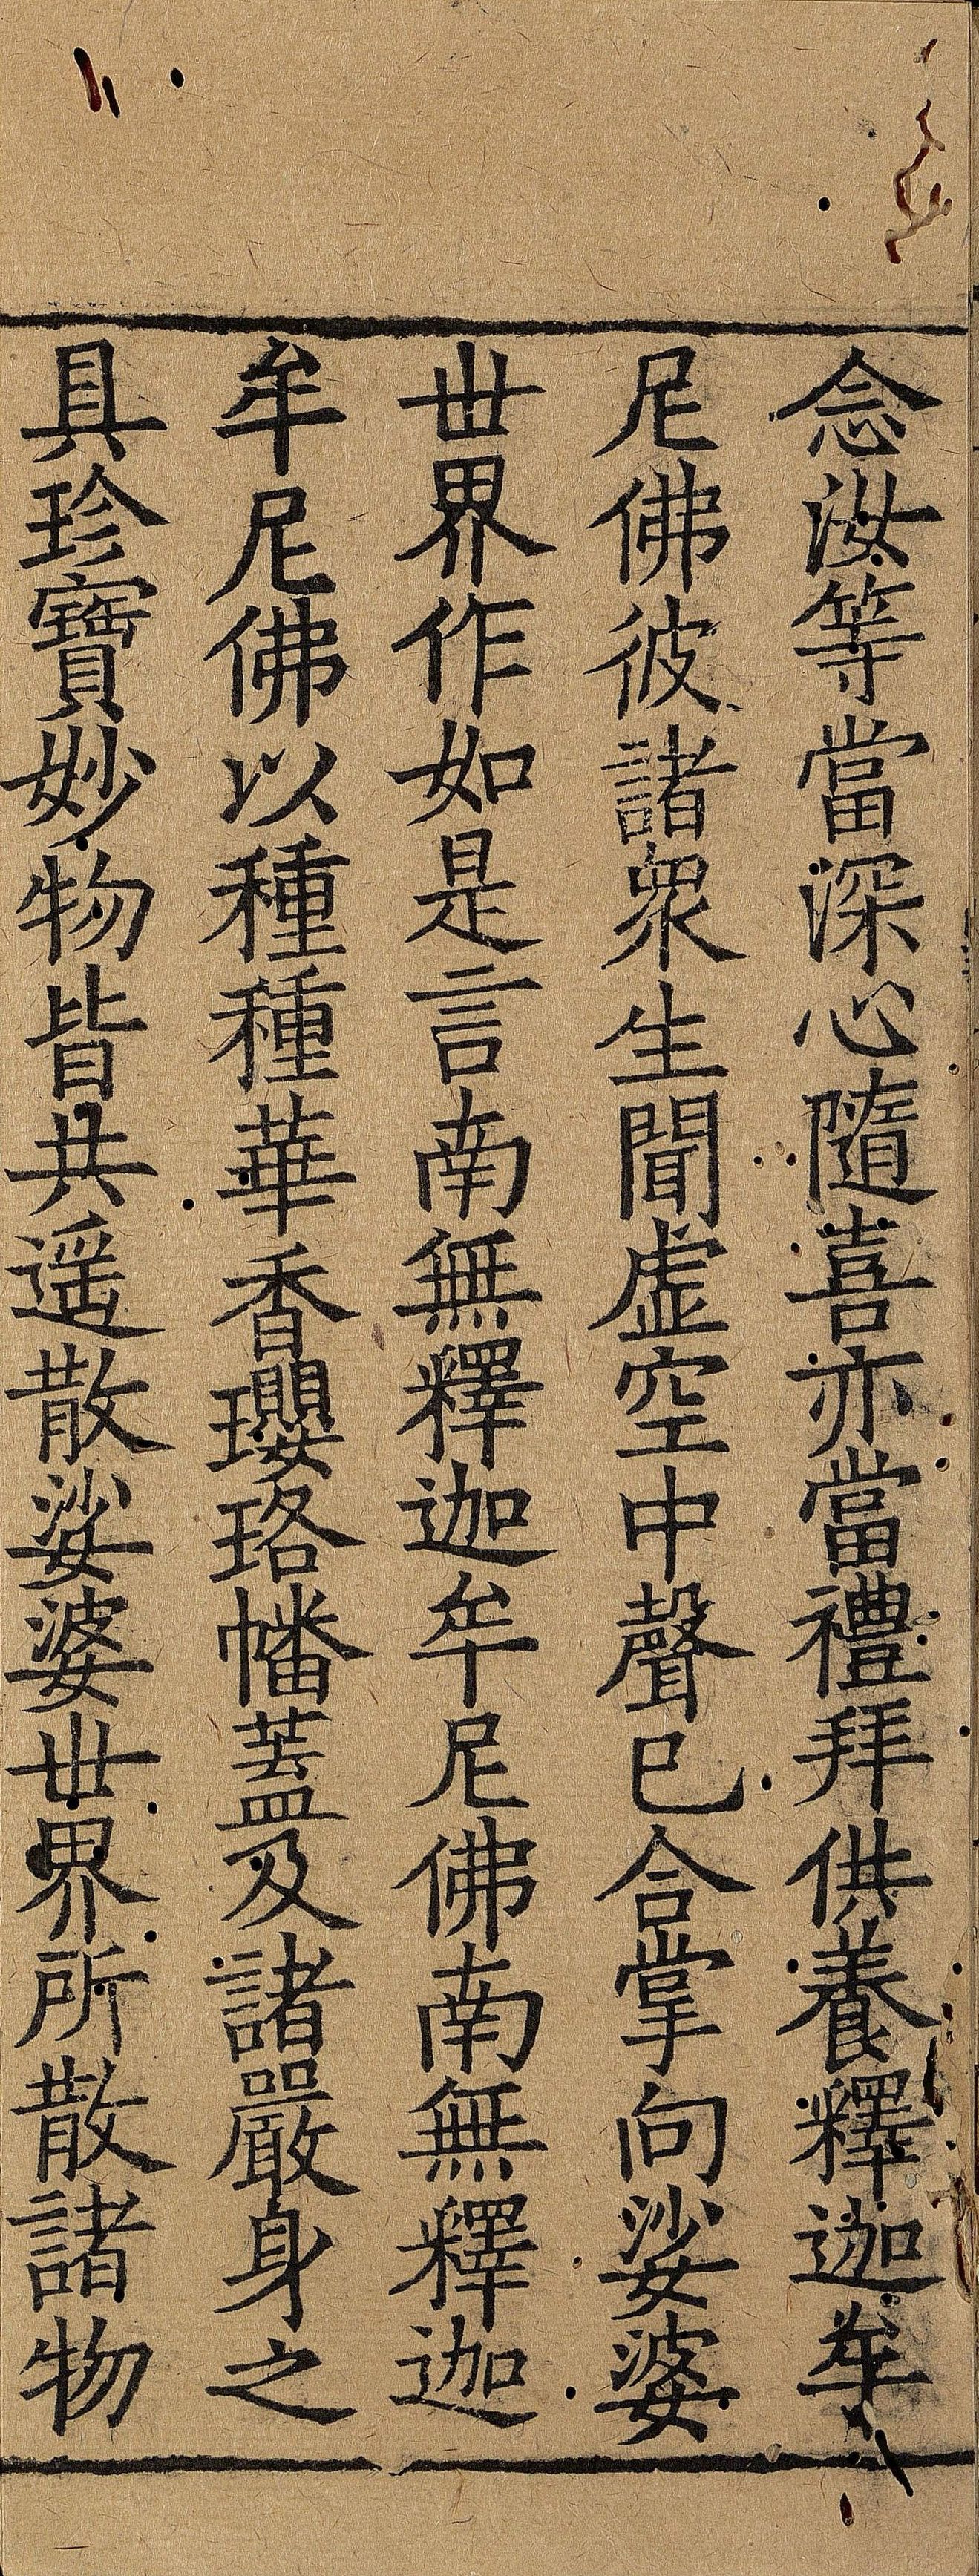 念汝等當深心隨喜亦當禮拜供養釋迦牟
尼佛彼諸衆生聞虛空中聲已合掌向娑婆
世界作如是言南無釋迦牟尼佛南無釋迦
牟尼佛以種種華香瓔珞幡蓋及諸嚴身之
具珍寶妙物皆共遥散娑婆世界所散諸物